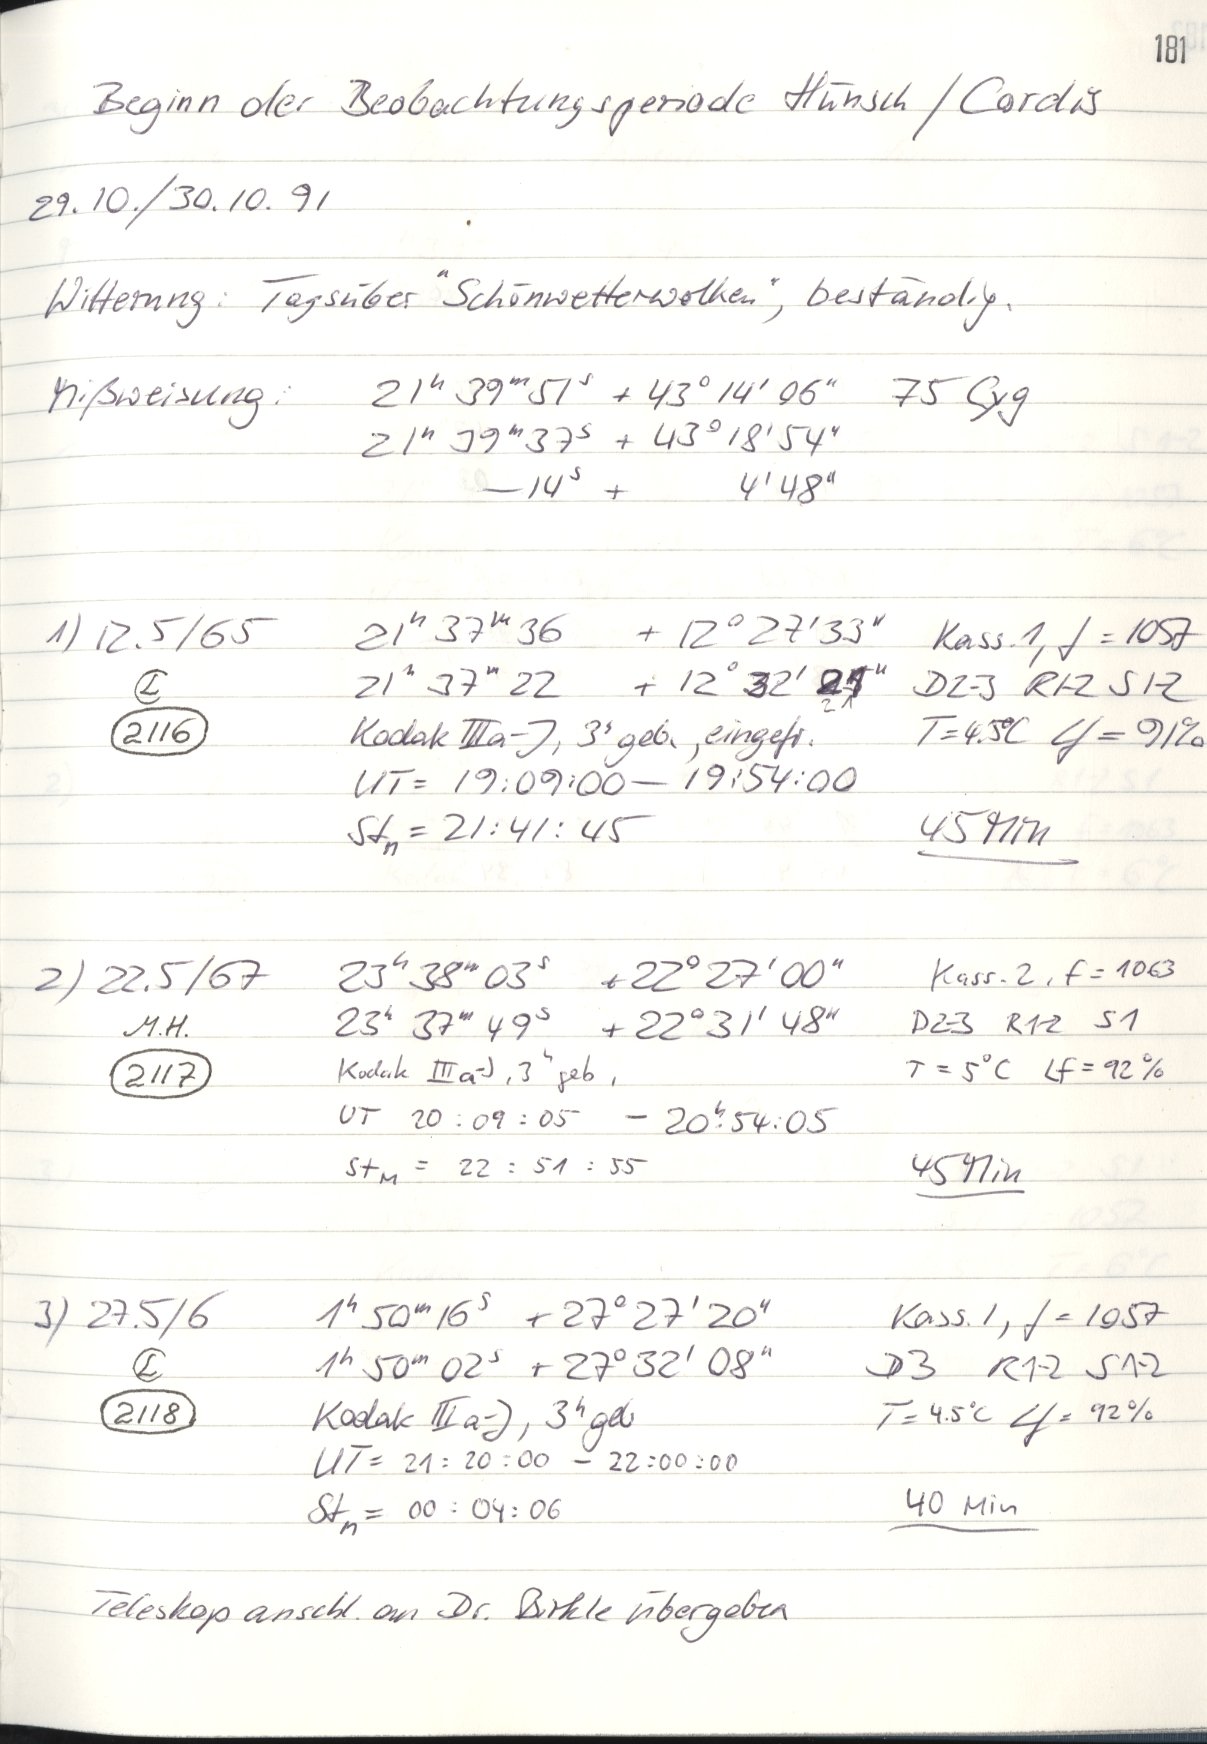 181
Beginn der Beobachtungsperiode Hünsch / Cordis
29.10./30.10.91
Witterung: Tagsüber "Schönwetterwolken", beständig.
Mißweisung: 21h 39m 51s + 43° 14' 06" 75 Cyg
21h 39m 37s + 43° 18' 54"
-14s + 4' 48"
1) 12.5/65 21h 37m 36 + 12° 27' 33" Kass. 1, f = 1057
21h 37m 22 + 12° 32' 21" D2-3 R1-2 S1-2
2116 Kodak IIIa-J, 3h geb., eingefr. T = 4.5°C Lf = 91%
UT = 19:09:00 — 19:54:00
Stm = 21:41:45 45 Min
2) 22.5/67 23h 38m 03s +22° 27' 00" Kass. 2, f = 1063
M.H. 23h 37m 49s +22° 31' 48" D2-3 R1-2 S1
2117 Kodak IIIa-J, 3h geb, T = 5°C Lf = 92%
UT 20:09:05 - 20h:54:05
StM = 22:51:55 45 Min
3) 27.5/6 1h 50m 16s +27° 27' 20" Kass. 1, f = 1057
1h 50m 02s +27° 32' 08" D3 R1-2 S1-2
2118 Kodak IIIa-J, 3h geb T = 4.5°C Lf = 92%
UT = 21:20:00 - 22:00:00
Stm = 00:04:06 40 Min
Teleskop anschl. an Dr. Birkle übergeben